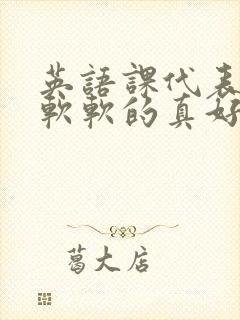 英語課代表
軟軟的真好
葛大店